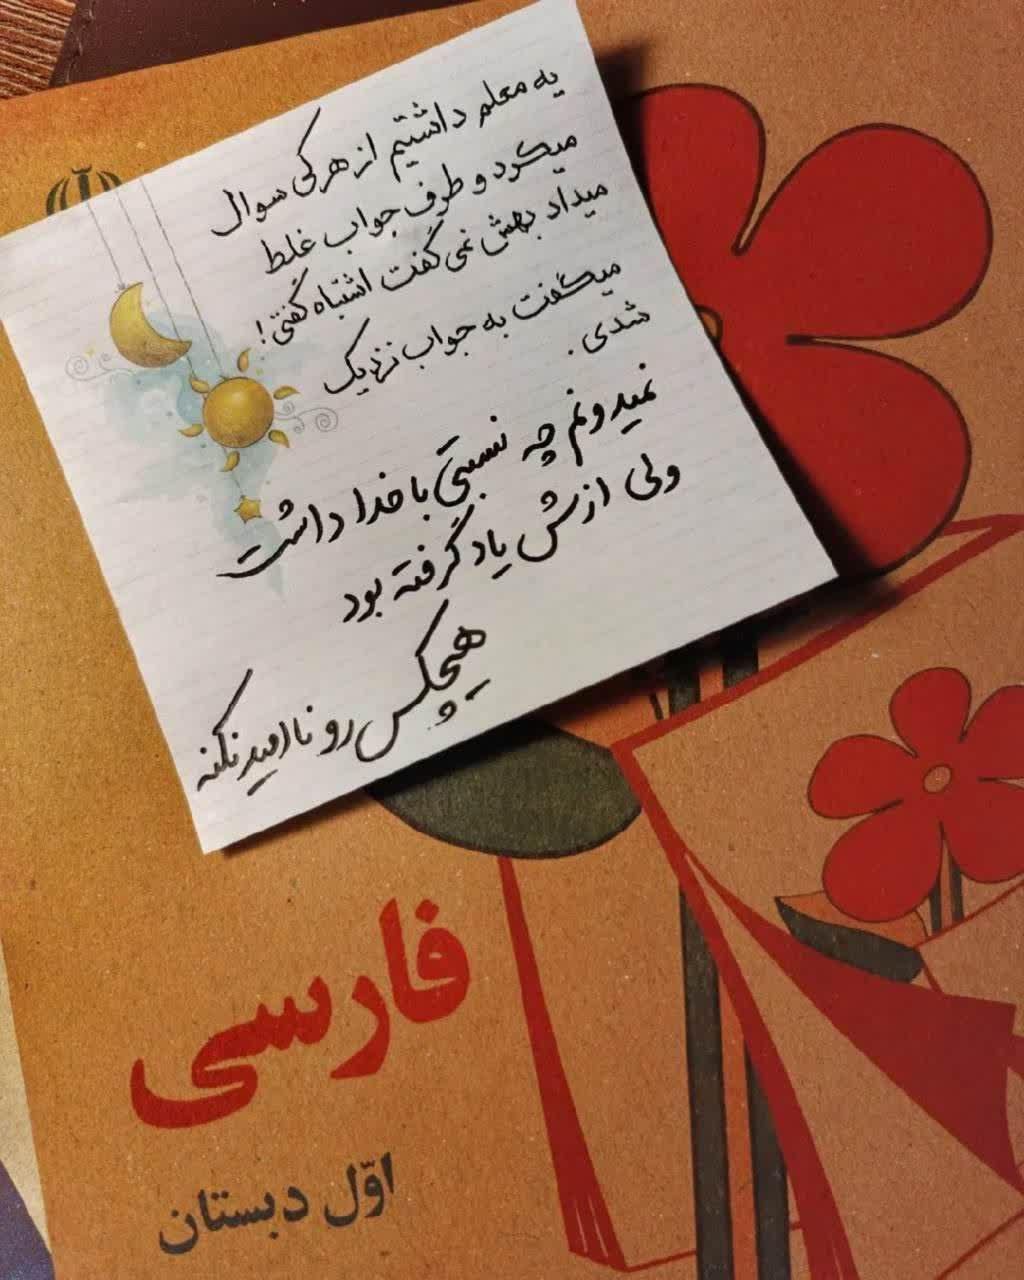 یه معلم داشتیم از هرکی سوال
میکرد و طرف جواب غلط
میداد بهش نمی گفت اشتباه گفتی!
میگفت به جواب نزدیک
شدی.
نمیدونم چه نسبتی با خدا داشت
ولی ازش یاد گرفته بود
هیچکس رو ناامید نکنه
فارسی
اوّل دبستان